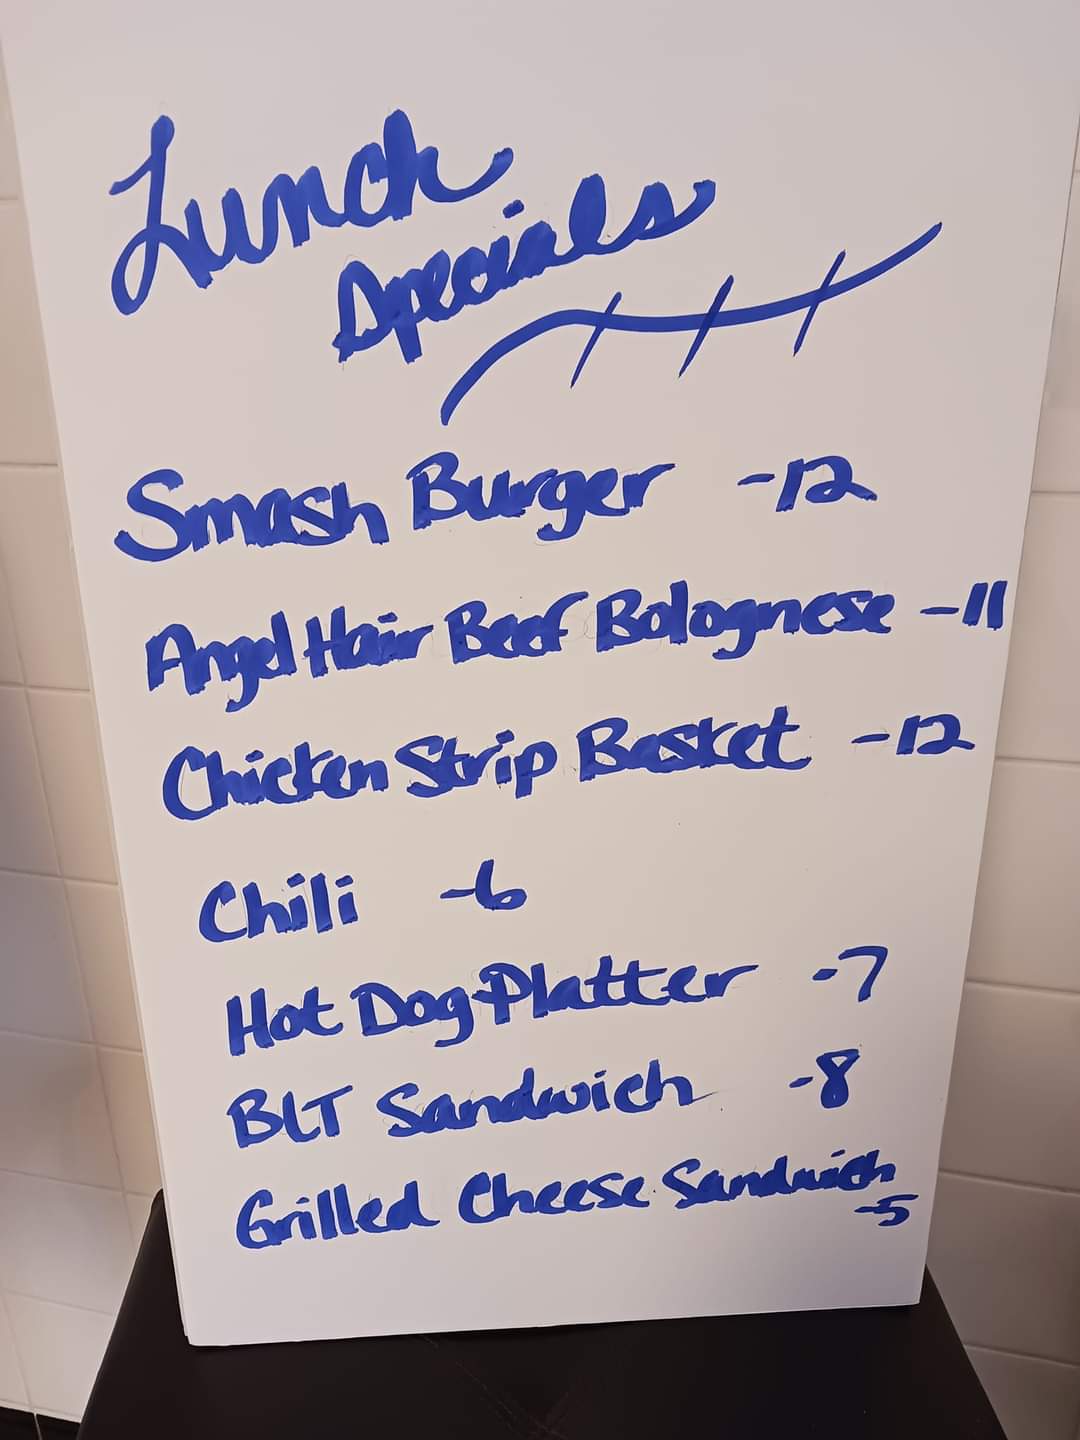 Lunch
Specials
Smash Burger -12
Angel Hair Beef Bolognese -11
Chicken Strip Basket -12
Chili -6
Hot Dog Platter -7
BLT Sandwich -8
Grilled Cheese Sandwich
-5